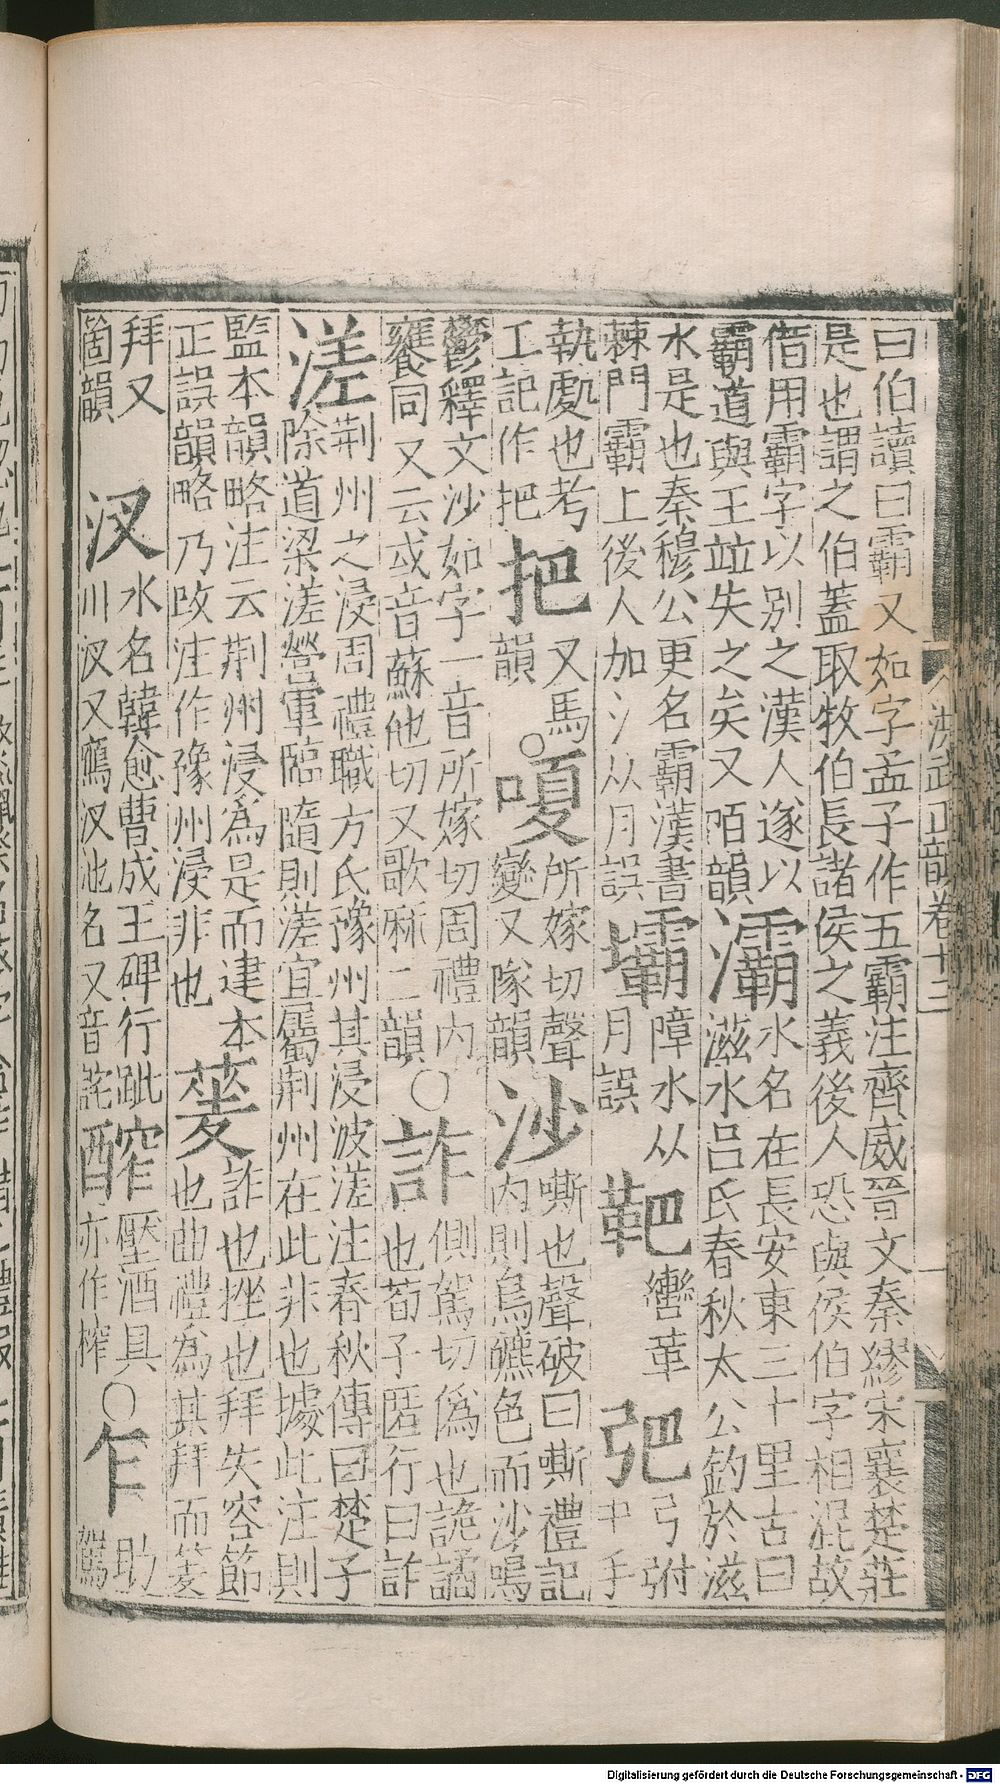 洪武正韻卷十三
曰伯讀曰霸又如字孟子作五霸注齊威晉文秦繆宋襄楚莊
是也謂之伯蓋取牧伯長諸侯之義後人恐與侯伯字相混故
借用霸字以別之漢人遂以
霸道與王竝失之矣又陌韻
灞
水名在長安東三十里古曰
滋水呂氏春秋太公釣於滋
水是也秦穆公更名霸漢書
棘門霸上後人加氵从月誤
壩
障水从
月誤
靶
轡革
弝
弓弣
中手
執處也考
工記作把
把
又馬
韻
○嗄
所嫁切聲
變又隊韻
沙
嘶也聲破曰嘶禮記
內則鳥皫色而沙鳴
鬱釋文沙如字一音所嫁切周禮內
饔同又云或音蘇他切又歌麻二韻
○詐
側駕切偽也詭譎
也荀子匿行曰詐
溠
荊州之浸周禮職方氏豫州其浸波溠注春秋傳曰楚子
除道梁溠營軍臨隨則溠宜屬荊州在此非也據此注則
監本韻略注云荊州浸為是而建本
正誤韻略乃改注作豫州浸非也
蓌
詐也挫也拜失容節
也曲禮為其拜而蓌
拜又
箇韻
汊
水名韓愈曹成王碑行跐
川汊又鷹汊池名又音詫
醡
壓酒具
亦作榨
○乍
助
駕
Digitalisierung gefördert durch die Deutsche Forschungsgemeinschaft - DFG